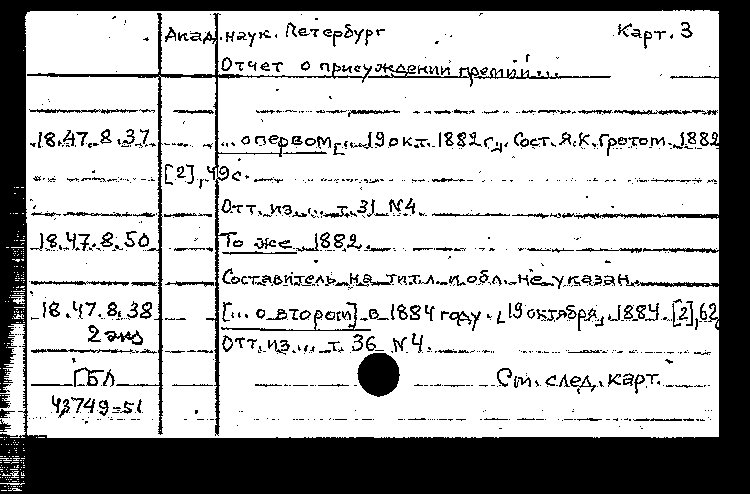 Акад. наук. Петербург Карт. 3
Отчет о присуждении премий...
18.47.8.37 ... о первом, ... 19 окт. 1882 г., Сост. Я.К. Гротом. 1882
[2], 49 с.
Отт. из ... т. 31 N4
18.47.8.50 То же 1882.
Составитель на тит.л. и обл. не указан.
18.47.8.38 [... о втором] в 1884 году. 19 октября, 1884. [2], 62
2 экз Отт. из ... т. 36 N4.
ГБЛ См. след. карт.
43749-51